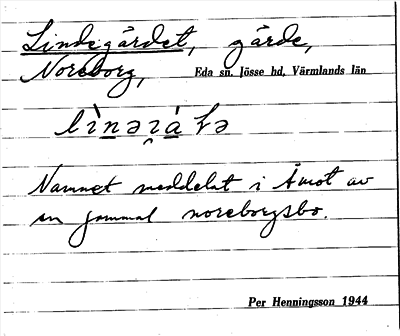 Lindegärdet, gärde,
Noreborg,
Eda sn. Jösse hd, Värmlands län
Namnet meddelat i Åmot av
en gammal noreborgsbo.
Per Henningsson 1944